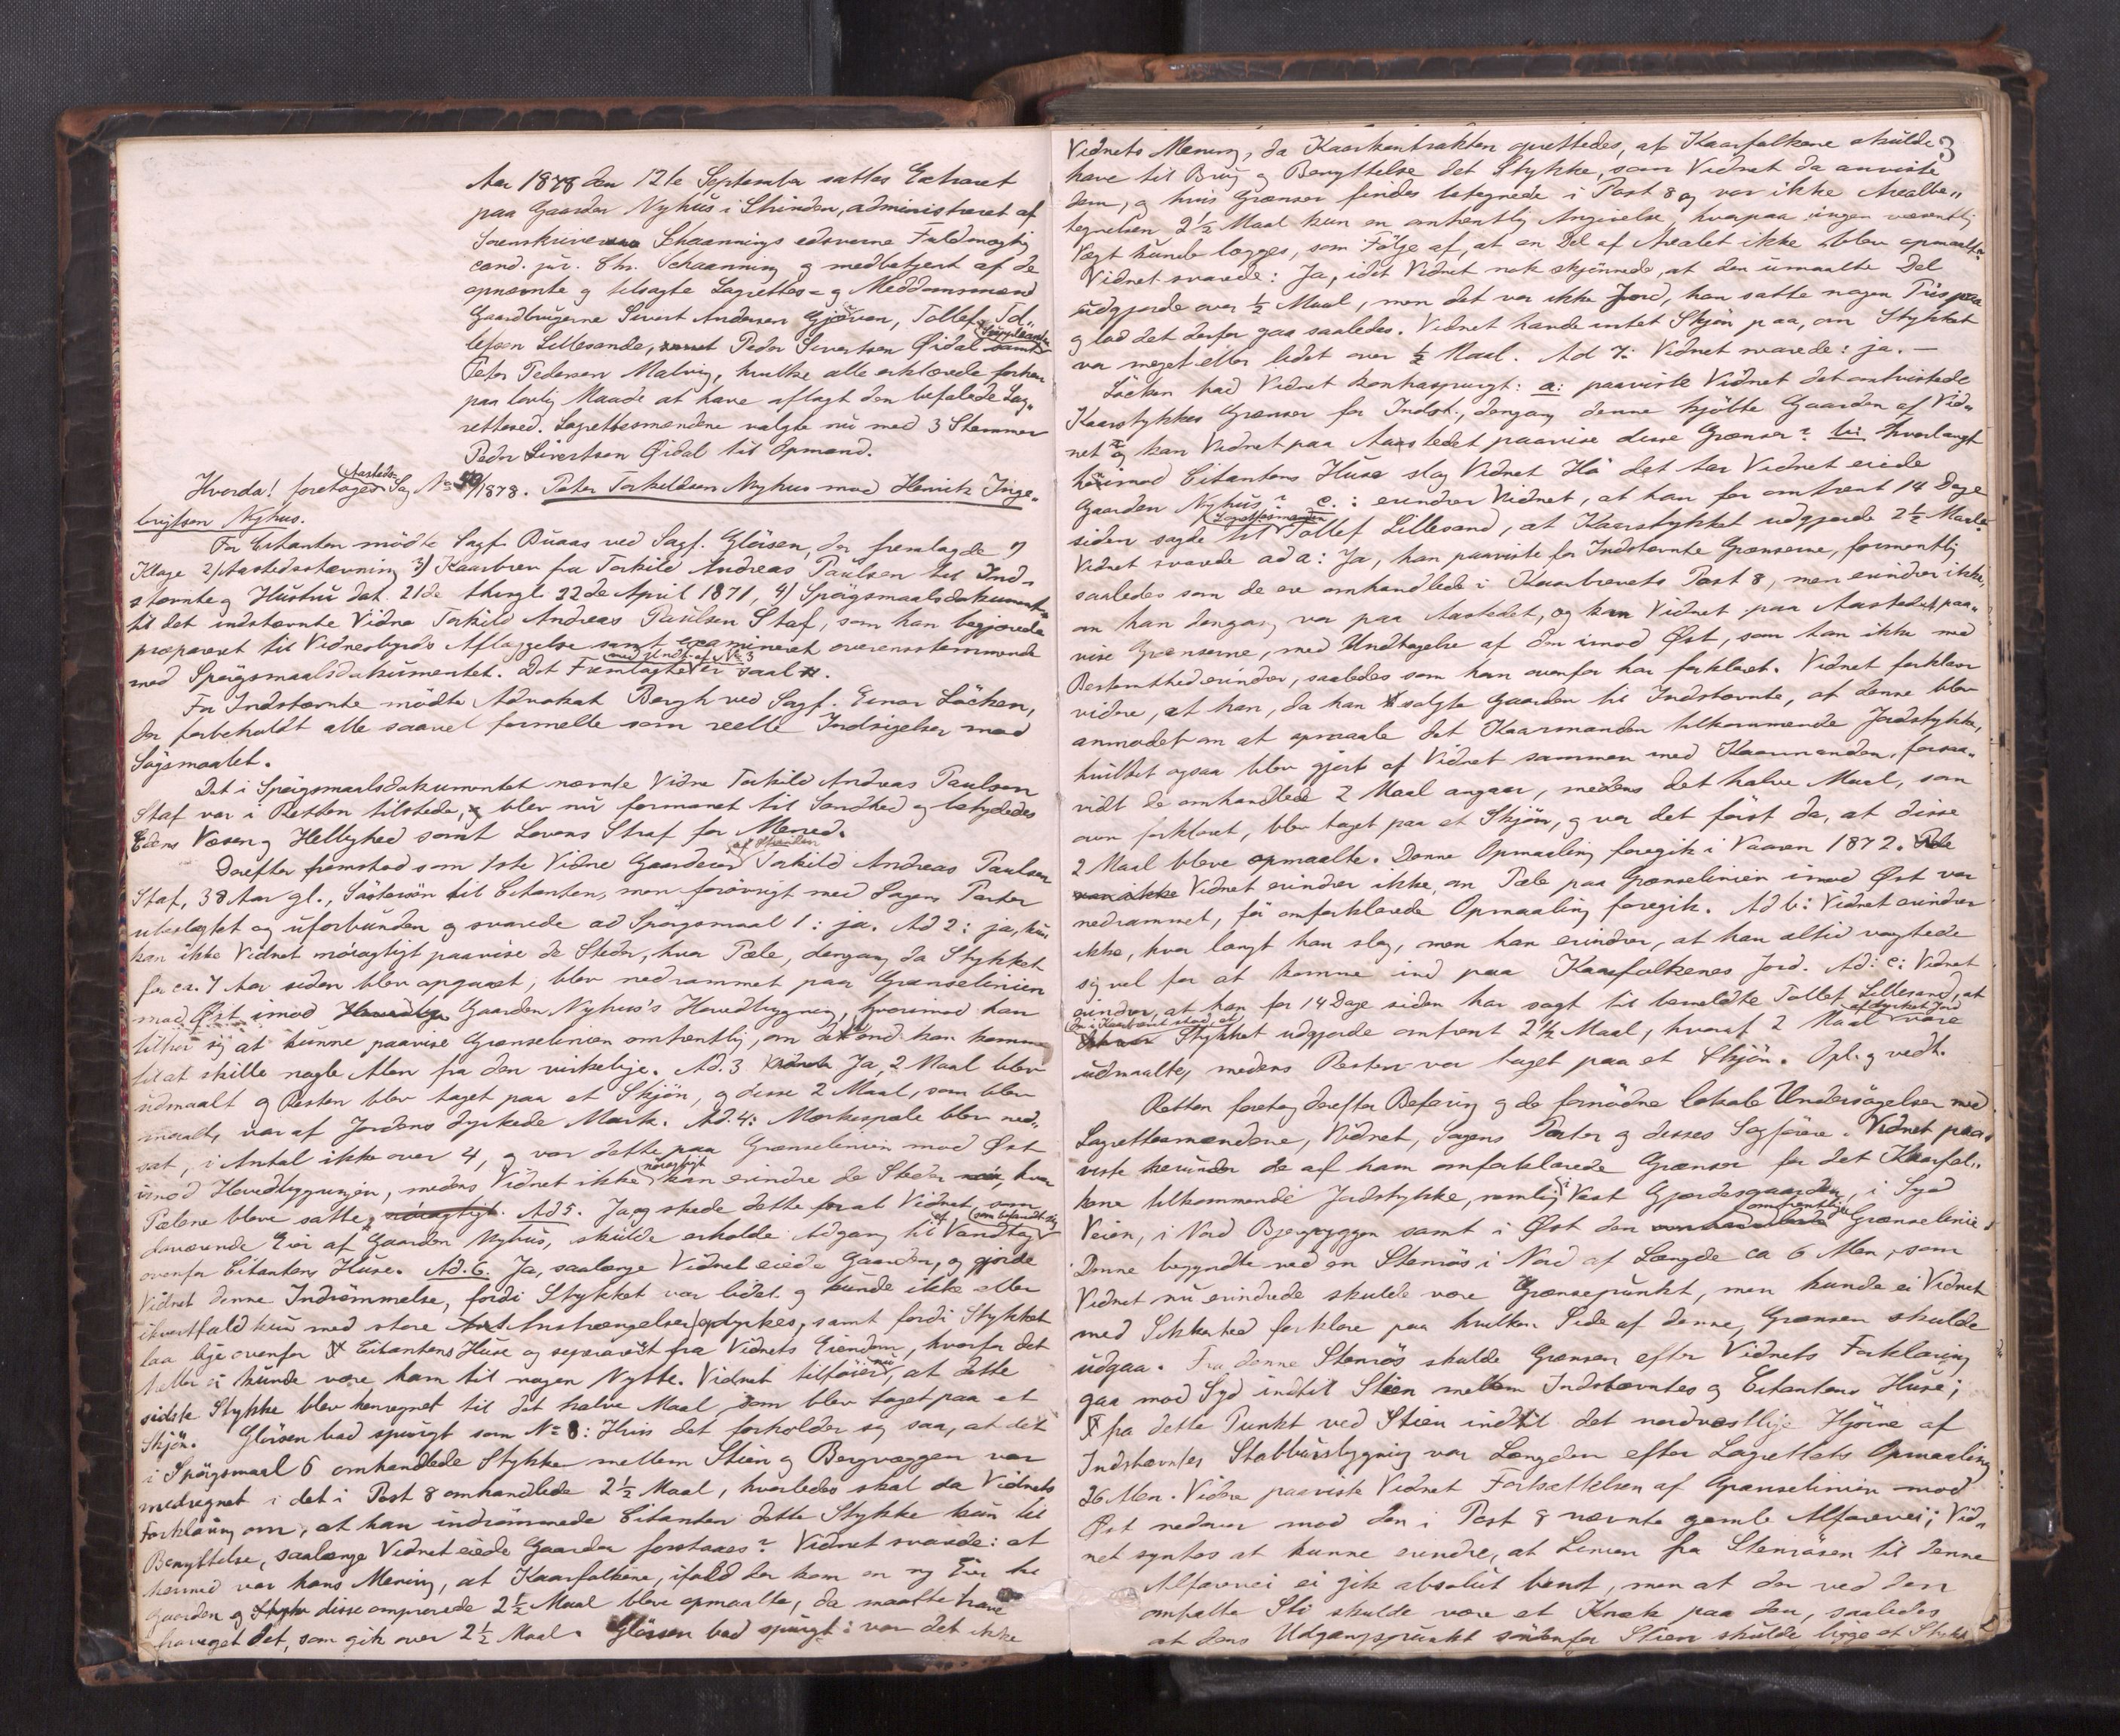 Aar 1878 den 12te September sattes Extraret
paa Gaarden Nyhus i Strinden, administreret af
Sorenskriver Schaannings edsvorne Fuldmægtig
cand. jur. Chr. Schaanning og medbetjent af de
opnævnte og tilsagte Lagrettes- og Meddomsmænd
Gaardbrugerne Sivert Andersen Gjæven, Tollef Tol„
lefsen Lillesande, Peder Sivertsen Øidal samt
Peter Pedersen Malvig, hvilke alle erklærede forhen
paa lovlig Maade at have aflagt den befalede Lag„
rettesed. Lagrettesmændene valgte nu med 3 Stemmer
Peder Sivertsen Øidal til Opmand.
Hvorda! foretoges Aasteds Sag No /1878. Peter Torkildsen Nyhus mod Henrik Inge„
brigtsen Nyhus.
For Citanten mödte Sagf. Buaas ved Sagf. Glörsen, der fremlagde 1)
Klage 2) Aastedsstævning 3) Kaarbrev fra Torkild Andreas Paulsen til Ind„
stævnte og Hustru dat. 21de thingl. 22de April 1871, 4) Spörgsmaalsdokument
til det indstævnte Vidne Torkild Andreas Paulsen Staf, som han begjærede
præpareret til Vidnesbyrds Aflæggelse samt examineret overensstemmende
med Spörgsmaalsdokumentet. Det Fremlagte med Undt. af No 3 er saal.
For Indstævnte mödte Advokat Bergh ved Sagf. Einar Löchen,
der forbeholdt alle saavel formelle som reelle Indsigelser mod
Sögsmaalet.
Det i Spörgsmaalsdokumentet nævnte Vidne Torkild Andreas Paulsen
Staf var i Retten tilstede, blev nu formanet til Sandhed og betydedes
Edens Væsen og Hellighed samt Lovens Straf for Mened.
Derefter fremstod som 1ste Vidne Gaardeier af Stranden Torkild Andreas Paulsen
Staf, 38 Aar gl., Söstersön til Citanten, men forövrigt med Sagens Parter
ubeslægtet og uforbunden og svarede ad Spörgsmaal 1: ja. Ad 2: ja, kun
kan ikke Vidnet nöiagtigt paavise de Steder, hvor Pæle, dengang da Stykket
for ca. 7 Aar siden blev opgaaet, blev nedrammet paa Grænselinien
mod Øst imod Gaarden Nyhus's Hovedbygning, hvorimod han
tiltror sig at kunne paavise Grænselinien omtrentlig, om det end kan komme
til at skille nogle Alen fra den virkelige. Ad. 3 Ja, 2 Maal blev
udmaalt og Resten blev taget paa et Skjön, og disse 2 Maal, som blev
maalt, var af Jordens dyrkede Mark. Ad. 4: Mærkespæle blev ned„
sat, i Antal ikke over 4, og var dette paa Grænselinien mod Øst
imod Hovedbygningen, medens Vidnet ikke nöiagtigt kan erindre de Steder, hvor
Pælene bleve satte. Ad 5. Ja, og skede dette forat Vidnet, som
daværende Eier af Gaarden Nyhus, skulde erholde Adgang til et Vandtag som befandt sig
ovenfor Citantens Huse. Ad. 6. Ja, saalænge Vidnet eiede Gaarden, og gjorde
Vidnet denne Indrömmelse, fordi Stykket var lidet og kunde ikke eller
ihvertfald kun med store Anstrængelser opdyrkes, samt fordi Stykket
laa lige ovenfor Citantens Huse og separeret fra Vidnets Eiendom, hvorfor det
heller ei kunde være ham til nogen Nytte. Vidnet tilföier nu, at dette
sidste Stykke blev henregnet til det halve Maal, som blev taget paa et
Skjön. Glörsen bad spurgt som No 8: Hvis det forholder sig saa, at det
i Spörgsmaal 6 omhandlede Stykke mellem Stien og Bergvæggen var
medregnet i det i Post 8 omhandlede 2½ Maal, hvorledes skal da Vidnets
Forklaring om, at han indrömmede Citanten dette Stykke kun til
Benyttelse, saalænge Vidnet eiede Gaarden forstaaes? Vidnet svarede: at
hermed var hans Mening, at Kaarfolkene, ifald der kom en ny Eier til
Gaarden og disse omprovede 2½ Maal bleve opmaalte, da maatte have
fraveget det, som gik over 2½ Maal. Glörsen bad spurgt: var det ikke
3
Vidnets Mening, da Kaarkontrakten oprettedes, at Kaarfolkene skulde
have til Brug og Benyttelse det Stykke, som Vidnet da anviste
dem, og hvis Grænser findes betegnede i Post 8 og var ikke Arealbe„
tegnelsen 2½ Maal kun en omtrentlig Angivelse, hvorpaa ingen væsentlig
Vægt kunde lægges, som Fölge af, at en Del af Arealet ikke blev opmaalt?
Vidnet svarede: Ja, idet Vidnet nok skjönnede, at den umaalte Del
udgjorde over ½ Maal, men det var ikke Jord, han satte nogen Pris paa
og lod det derfor gaa saaledes. Vidnet havde intet Skjön paa, om Stykket
var meget eller lidet over ½ Maal. Ad 7: Vidnet svarede: ja. —
Löchen bad Vidnet kontraspurgt: a: paaviste Vidnet det omtvistede
Kaarstykkes Grænser for Indst., dengang denne kjöbte Gaarden af Vid„
net og kan Vidnet paa Aastedet paavise disse Grænser? b: Hvorlangt
henimod Citantens Huse slog Vidnet Hö det Aar Vidnet eiede
Gaarden Nyhus? c.: erindrer Vidnet, at han for omtrent 14 Dage
siden sagde til Lagrettesmanden Tollef Lillesand, at Kaarstykket udgjorde 2½ Maal?
Vidnet svarede ad a: Ja, han paaviste for Indstævnte Grænserne, formentlig
saaledes som de ere omhandlede i Kaarbrevets Post 8, men erindrer ikke,
om han dengang var paa Aastedet, og kan Vidnet paa Aastedet paa„
vise Grænserne, med Undtagelse af den imod Øst, som han ikke med
Bestemthed erindrer, saaledes som han ovenfor har forklaret. Vidnet forklarer
videre, at han, da han solgte Gaarden til Indstævnte, af denne blev
anmodet om at opmaale det Kaarmanden tilkommende Jordstykke,
hvilket ogsaa blev gjort af Vidnet sammen med Kaarmanden, forsaa„
vidt de omhandlede 2 Maal angaar, medens det halve Maal, som
oven forklaret, blev taget paa et Skjön, og var det först da, at disse
2 Maal bleve opmaalte. Denne Opmaaling foregik i Vaaren 1872.
Vidnet erindrer ikke, om Pæle paa Grænselinien imod Øst var
nedrammet, för omforklarede Opmaaling foregik. Ad b: Vidnet erindrer
ikke, hvor langt han slog, men han erindrer, at han altid vogtede
sig vel for at komme ind paa Kaarfolkenes Jord. Ad: c: Vidnet
erindrer, at han for 14 Dage siden har sagt til bemeldte Tollef Lillesand, at
Stykket udgjorde omtrent 2½ Maal, hvoraf 2 Maal af dyrket Jord vare
udmaalte, medens Resten var taget paa et Skjön. Opl. og vedt.
Retten foretog derefter Befaring og de fornödne lokale Undersögelser med
Lagrettesmændene, Vidnet, Sagens Parter og disses Sagförere. Vidnet paa„
viste herunder de af ham omforklarede Grænser for det Kaarfol„
kene tilkommende Jordstykke, nemlig i Vest Gjærdesgaarden, i Syd
Veien, i Nord Bjergryggen samt i Øst den omtrentlige Grænselinie.
Denne begyndte ved en Stenrös i Nord af Længde ca 6 Alen, som
Vidnet nu erindrede skulde være Grænsepunkt, men kunde ei Vidnet
med Sikkerhed forklare paa hvilken Side af denne, Grænsen skulde
udgaa. Fra denne Stenrös skulde Grænsen efter Vidnets Forklaring
gaa mod Syd indtil Stien mellem Indstævntes og Citantens Huse;
fra dette Punkt ved Stien indtil det nordvestlige Hjörne af
Indstævntes Stabbursbygning var Længden efter Lagrettets Opmaaling
26 Alen. Videre paaviste Vidnet Fortsættelsen af Grænselinien mod
Øst nedover mod den i Post 8 nævnte gamle Alfarevei; Vid„
net syntes at kunne erindre, at Linien fra Stenrösen til denne
Alfarevei ei gik absolut bent, men at der ved den
omtalte Sti skulde være et Knæk paa den, saaledes
at dens Udgangspunkt söndenfor Stien skulde ligge et Stykke